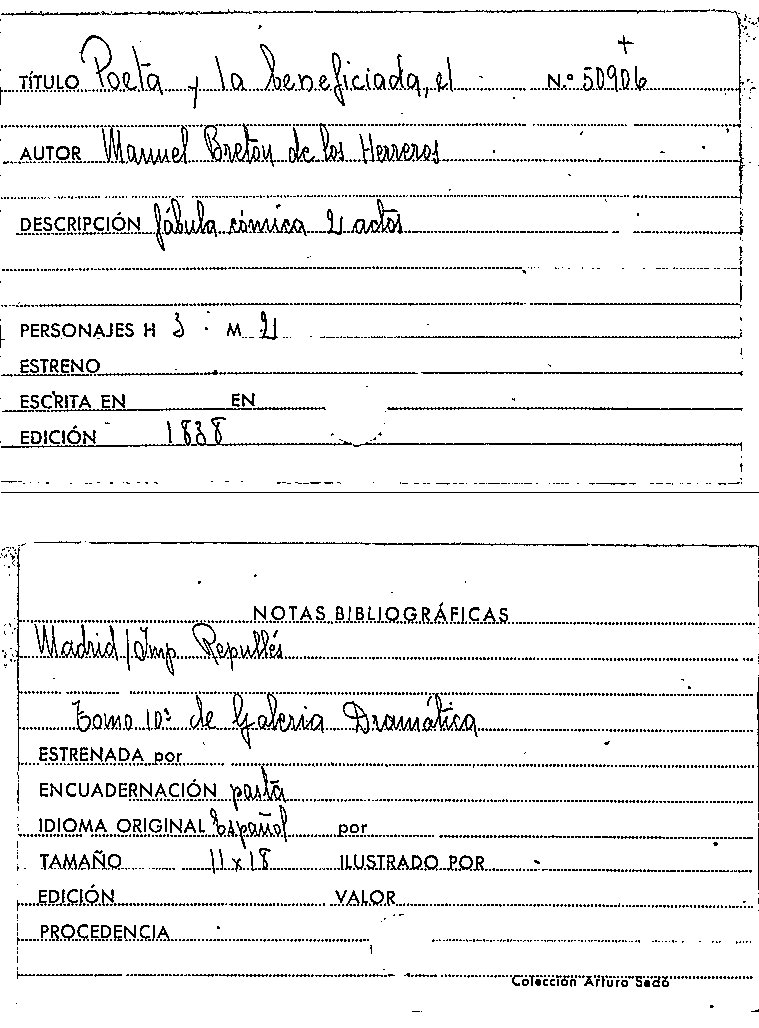 +
TÍTULO Poeta y la beneficiada, el N.º 50906
AUTOR Manuel Breton de los Herreros
DESCRIPCIÓN fábula cómica 2 actos
PERSONAJES H 3 M 2
ESTRENO
ESCRITA EN EN
EDICIÓN 1838
NOTAS BIBLIOGRÁFICAS
Madrid/Imp. Repullés
Tomo 10º de Galeria Dramática
ESTRENADA por
ENCUADERNACIÓN pasta
IDIOMA ORIGINAL Español por
TAMAÑO 11 x 18 ILUSTRADO POR
EDICIÓN VALOR
PROCEDENCIA
Colección Arturo Sedó